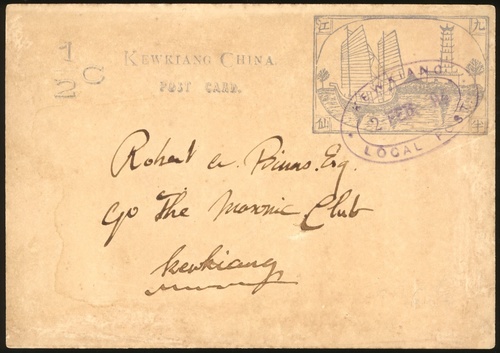 1/2 C
KEWKIANG CHINA.
POST CARD.
江 九
KEWKIANG
2 FEB. 94
LOCAL POST
Robert
Esq.
c/o The Masonic Club
Kewkiang